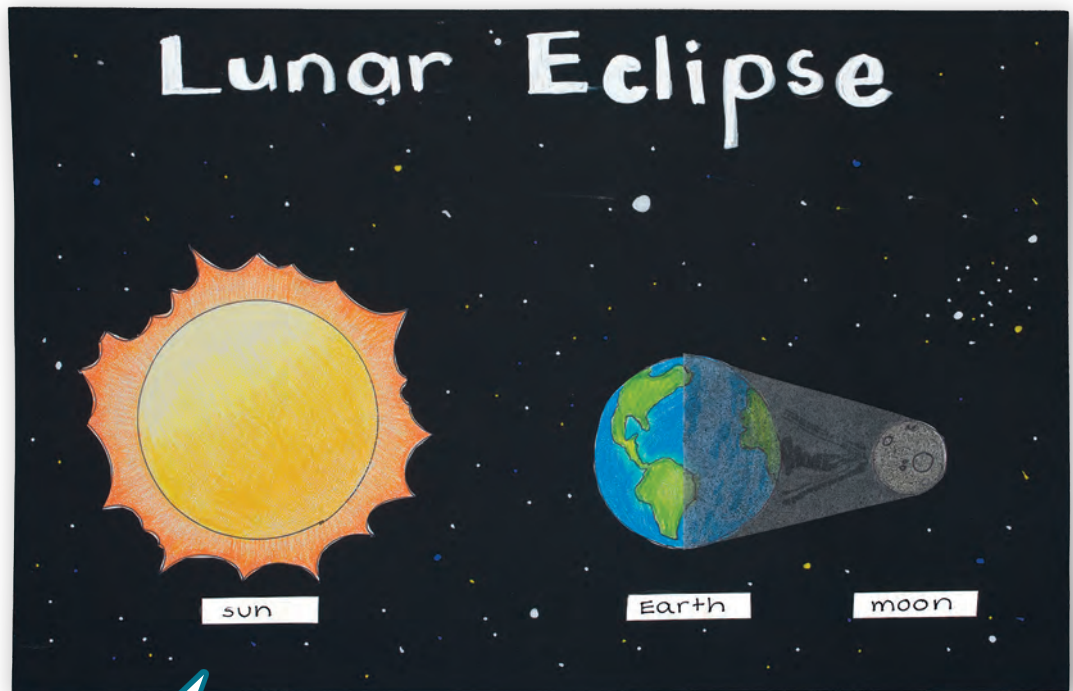 Lunar Eclipse
sun
Earth
moon